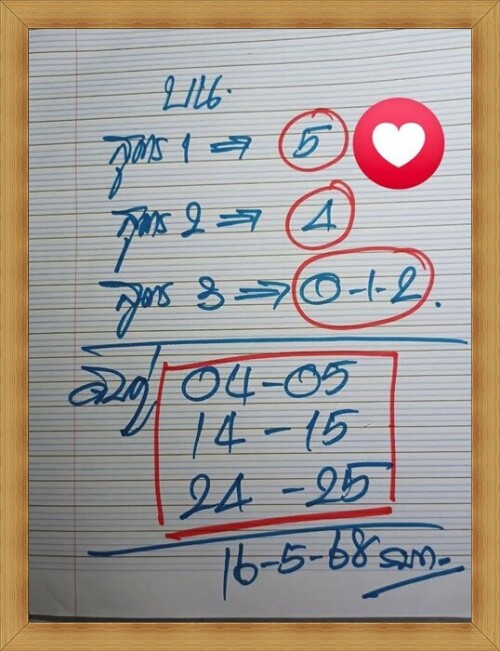 บน.
สูตร 1 ⇒ 5
สูตร 2 ⇒ 4
สูตร 3 ⇒ 0-1-2.
04-05
14-15
24-25
16-5-68